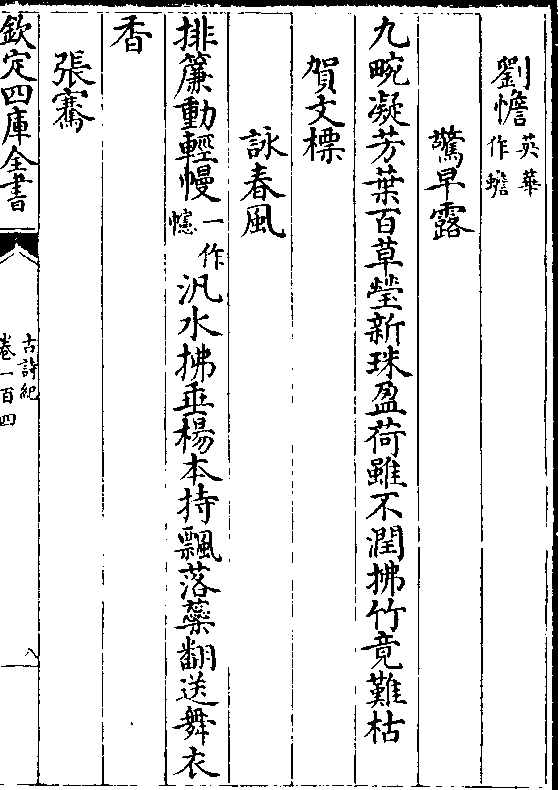 劉憺英華作蟾
驚早露
九畹凝芳葉百草瑩新珠盈荷雖不潤拂竹竟難枯
賀文標
詠春風
排簾動輕幔一作幰汎水拂垂楊本持飄落蘂翻送舞衣
香
張騫
欽定四庫全書
古詩紀
卷一百四
八